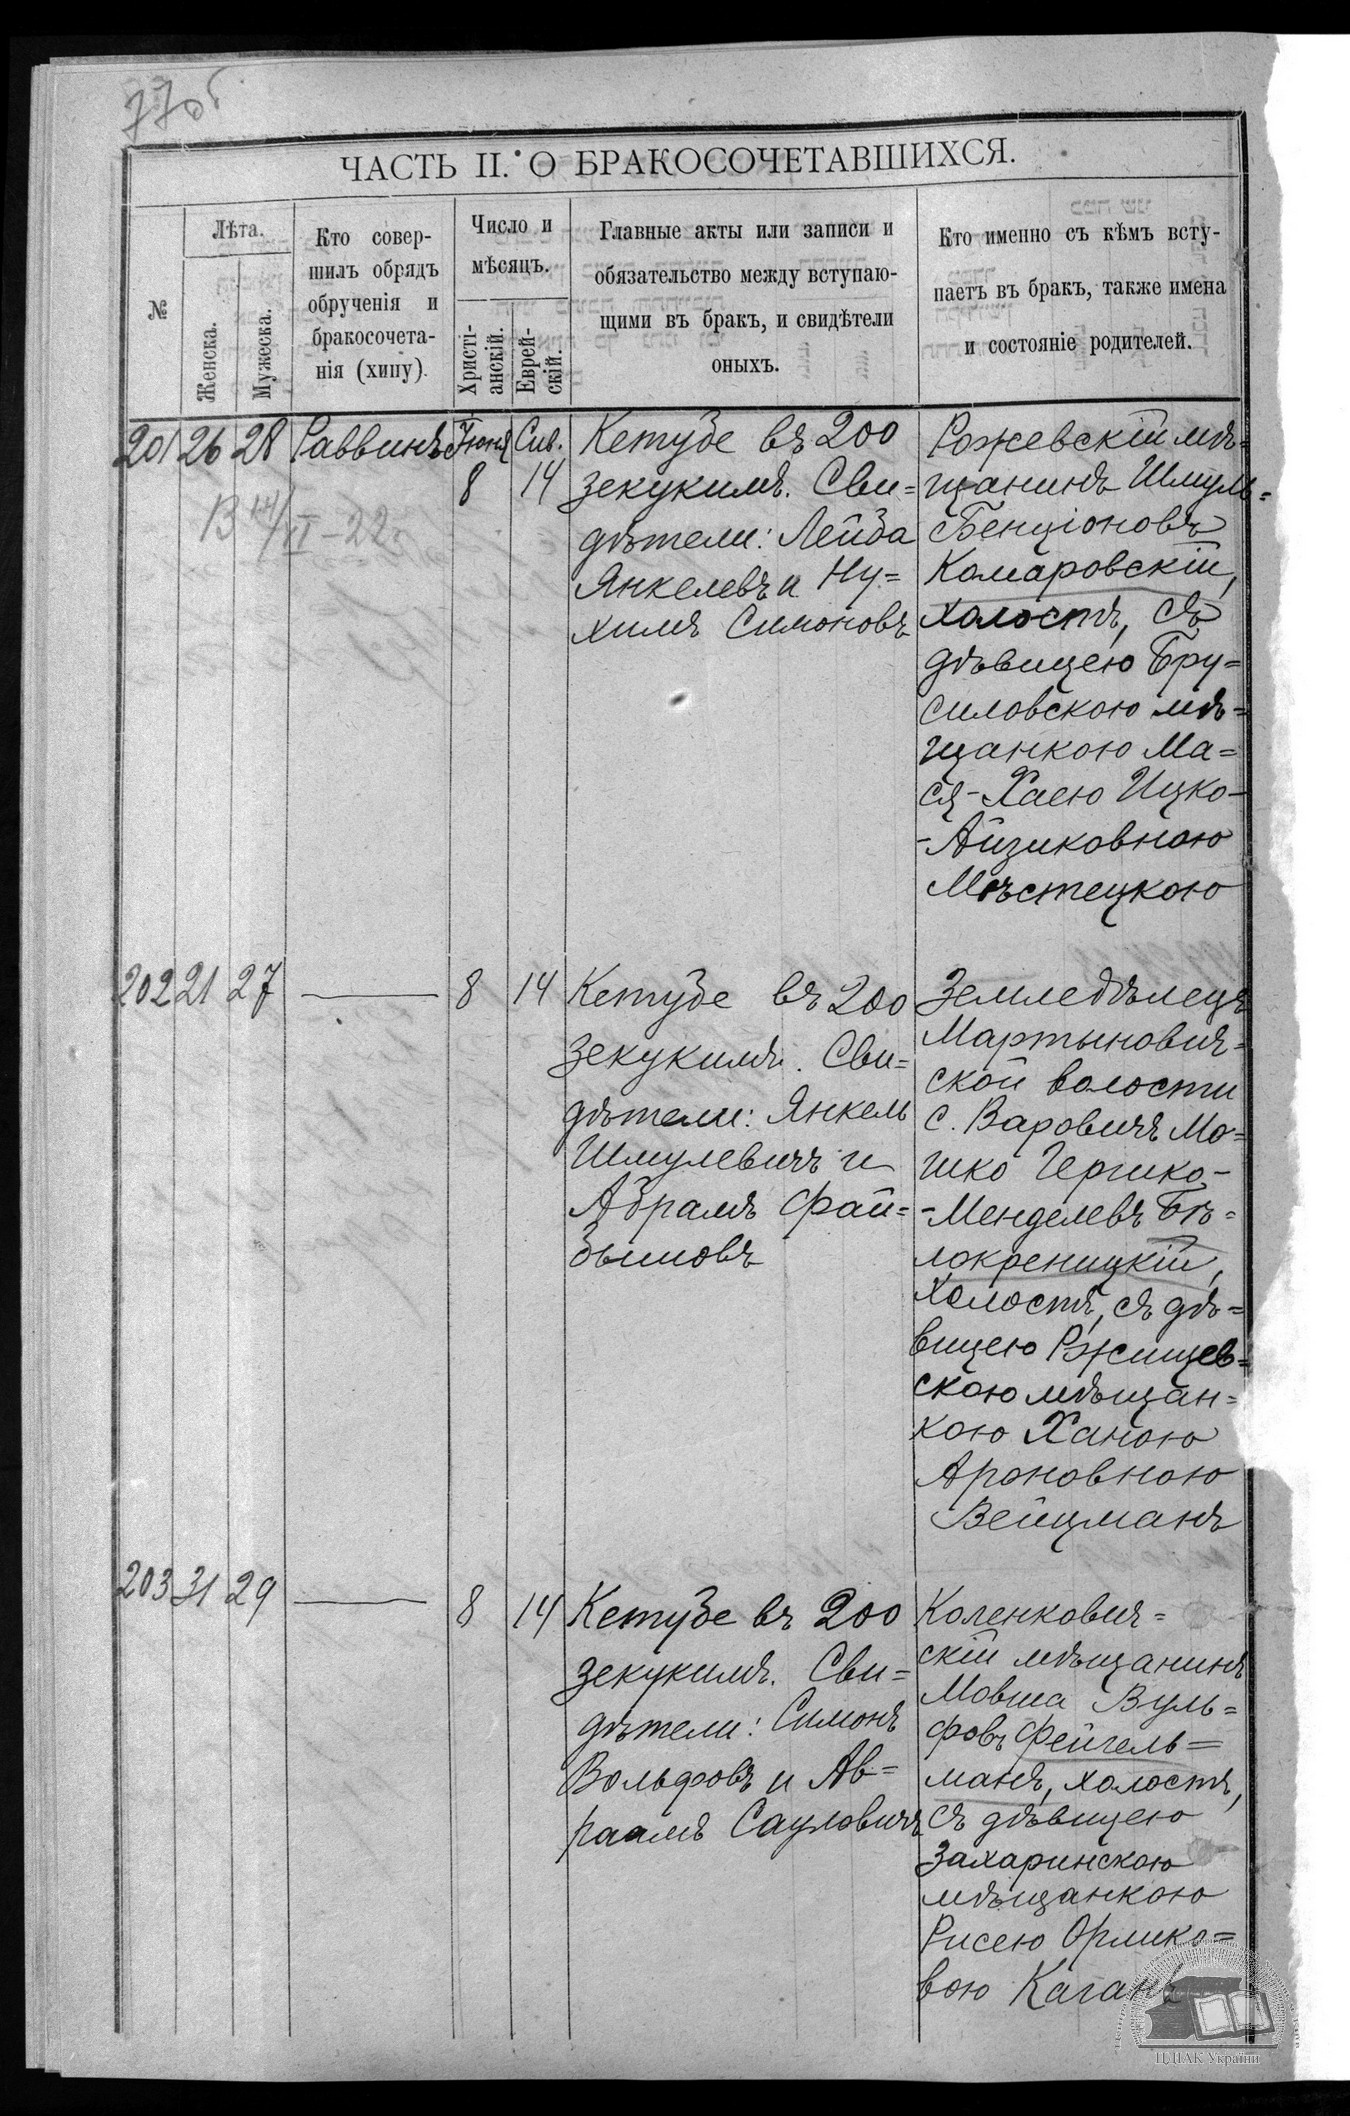 77об
ЧАСТЬ II. О БРАКОСОЧЕТАВШИХСЯ.
№
Лѣта.
Женска.
Мужеска.
Кто совер-
шилъ обрядъ
обрученія и
бракосочета-
нія (хипу).
Число и
мѣсяцъ.
Христі-
анскій.
Еврей-
скій.
Главные акты или записи и
обязательство между вступаю-
щими въ бракъ, и свидѣтели
оныхъ.
Кто именно съ кѣмъ всту-
паетъ въ бракъ, также имена
и состояніе родителей.
201 26 28 Раввинъ Іюня 8 Сив. 14
В 14/VI-22
Кетубе въ 200
зекукимъ. Сви=
дѣтели: Лейба
Янкелевъ и Ну=
химъ Симоновъ
Рожевскій мѣ=
щанинъ Шмуль=
Бенціоновъ
Комаровскій,
холостъ, съ
дѣвицею Бру=
силовскою мѣ=
щанкою Ма=
ся-Хаею Ицко-
-Айзиковною
Мѣстецкою
202 21 27 8 14
Кетубе въ 200
зекукимъ. Сви=
дѣтели: Янкель
Шмулевичъ и
Абрамъ Фай=
бышовъ
Земледѣлецъ
Мартынович=
ской волости
с. Варовичъ Мо=
шко Гершко-
-Менделевъ Бѣ=
локреницкій,
холостъ, съ дѣ=
вицею Ржищев=
скою мѣщан=
кою Ханою
Ароновною
Вейцманъ
203 31 29 8 14
Кетубе въ 200
зекукимъ. Сви=
дѣтели: Симонъ
Вольфовъ и Ав=
раамъ Сауловичъ
Коленкович=
скій мѣщанинъ
Мовша Вуль=
фовъ Фейгель=
манъ, холостъ,
съ дѣвицею
Захаринскою
мѣщанкою
Рисею Орлико=
вою Каганъ
ЦДІАК України